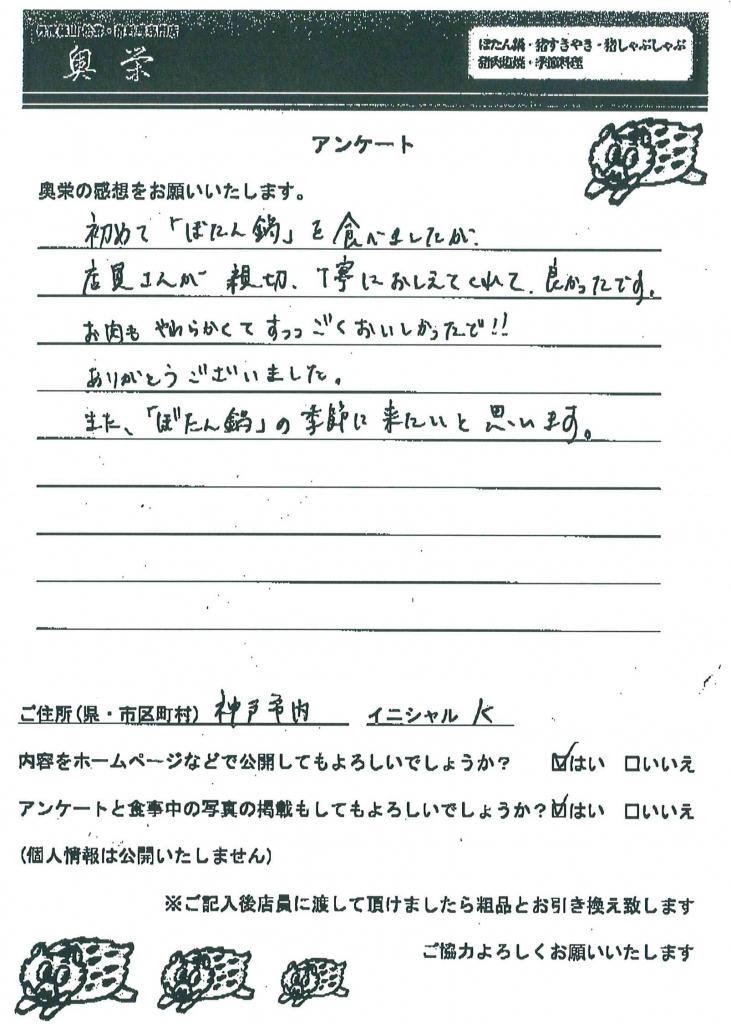 奥栄
ぼたん鍋・猪すきやき・猪しゃぶしゃぶ
猪肉塩焼・季節料理
アンケート
奥栄の感想をお願いいたします。
初めて「ぼたん鍋」を食べましたが、
店員さんが親切、丁寧におしえてくれて、良かったです。
お肉もやわらかくてすっっごくおいしかったで!!
ありがとうございました。
また、「ぼたん鍋」の季節に来たいと思います。
ご住所(県・市区町村) 神戸市内 イニシャル K
内容をホームページなどで公開してもよろしいでしょうか? ☑はい □いいえ
アンケートと食事中の写真の掲載もしてもよろしいでしょうか?☑はい □いいえ
(個人情報は公開いたしません)
※ご記入後店員に渡して頂けましたら粗品とお引き換え致します
ご協力よろしくお願いいたします